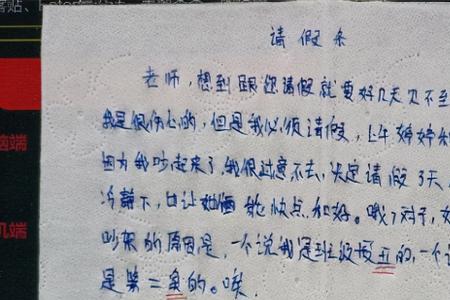 请假条
老师,想到跟您请假就要好几天见不到
我是很伤心的,但是我必须请假,上午婷婷和
因为我吵起来了,我很过意不去,决定请假3天
冷静下,也让她俩能快点和好。哦了对了,如
吵架的原因是,一个说我是班级最丑的,一个说
是第二丑的。唉,
脑端
机端